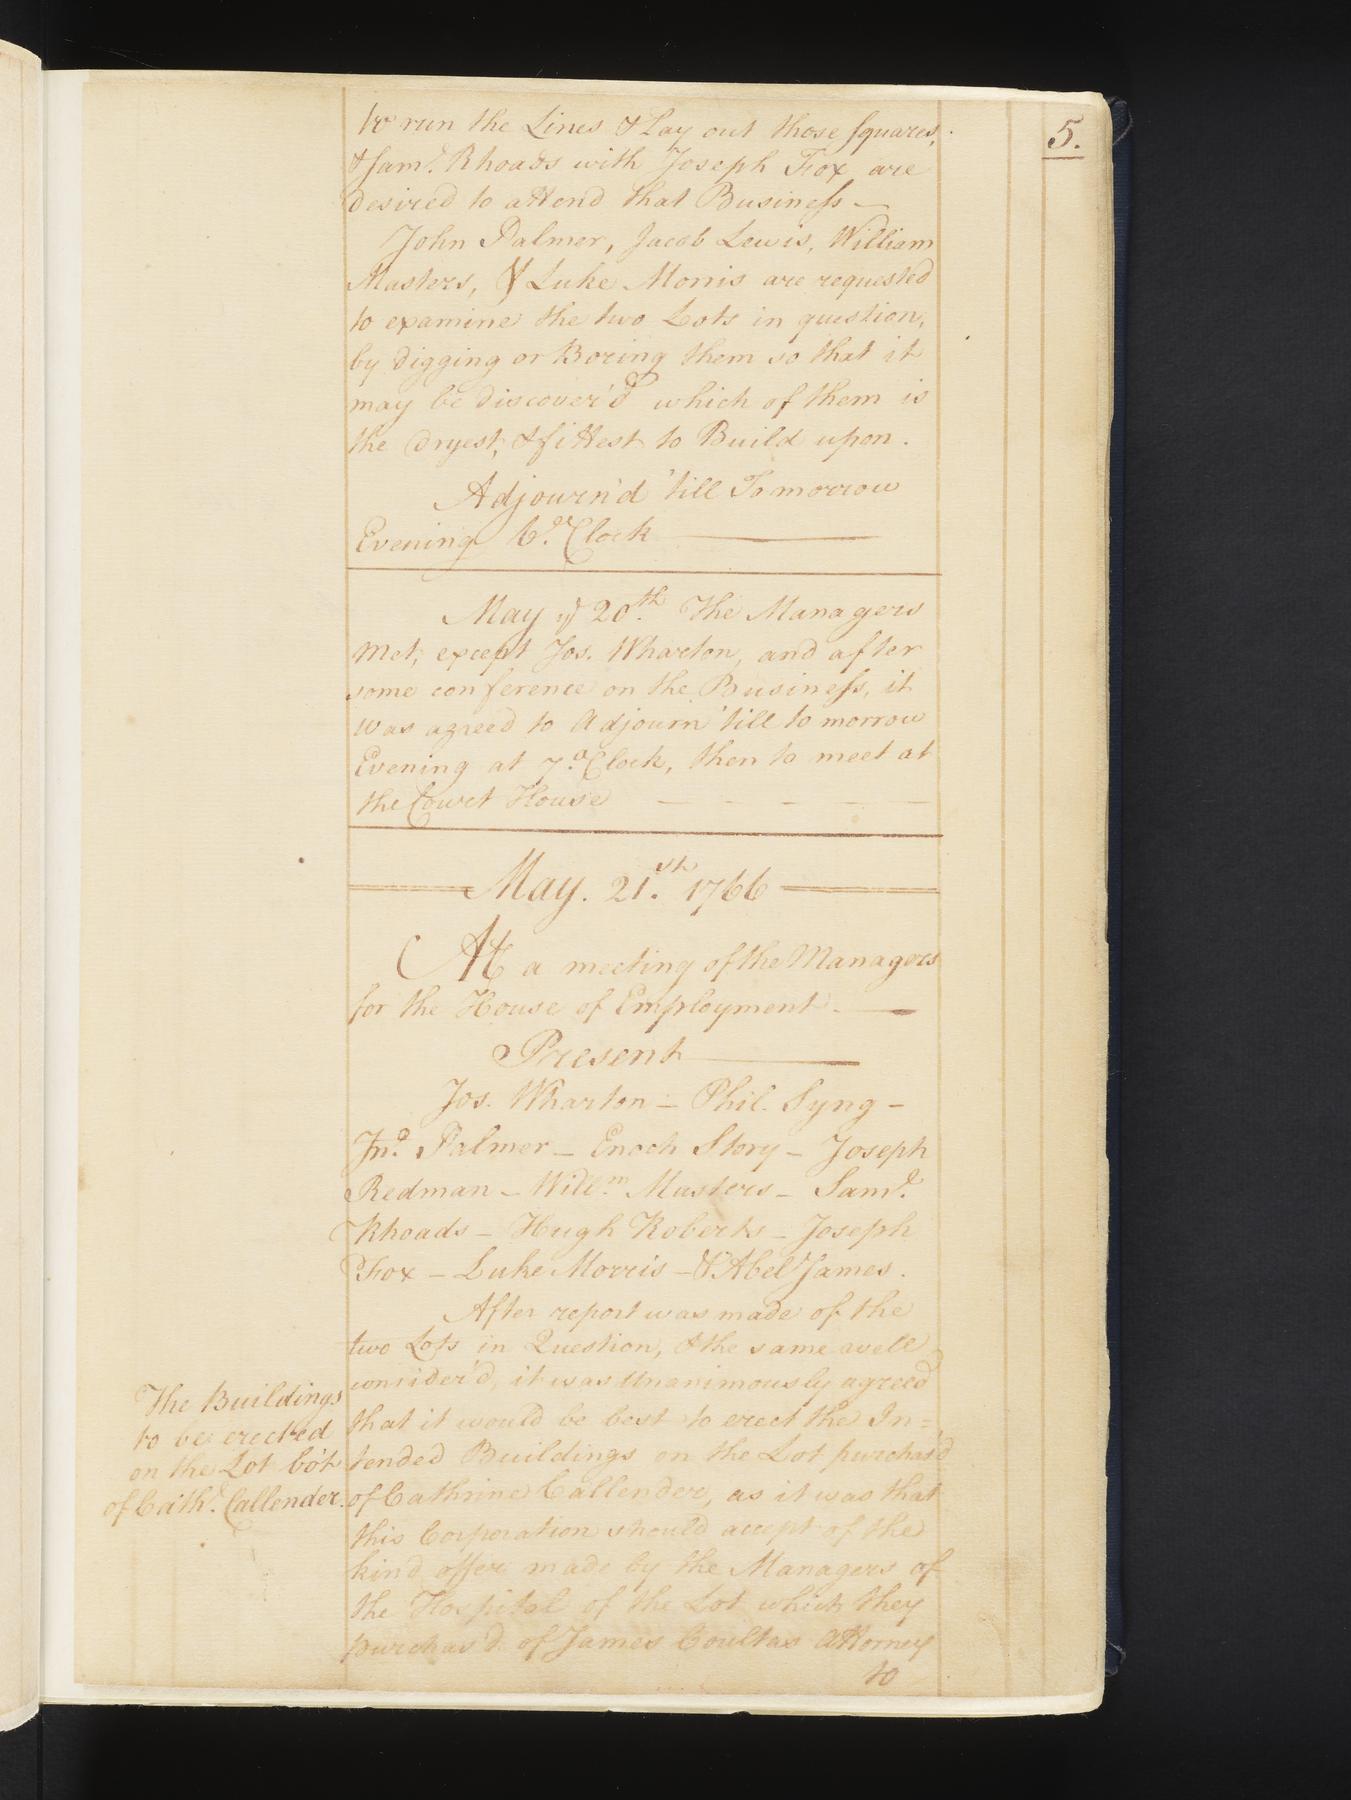 5.
to run the Lines & Lay out those squares,
& Saml. Rhoads with Joseph Fox are
desired to attend that Business —
John Palmer, Jacob Lewis, William
Masters, & Luke Morris are requested
to examine the two Lots in question,
by digging or Boring them so that it
may be discover'd which of them is
the dryest, & fittest to Build upon.
Adjourn'd 'till Tomorrow
Evening 6 o'Clock
May ye 20th. The Managers
Met, except Jos. Wharton, and after
some conference on the Business, it
was agreed to Adjourn 'till to morrow
Evening at 7 o'Clock, then to meet at
the Court House
May. 21st. 1766
At a meeting of the Managers
for the House of Employment. —
Present
Jos. Wharton — Phil. Syng —
Jno. Palmer — Enoch Story — Joseph
Redman — Willm. Masters — Saml.
Rhoads — Hugh Roberts — Joseph
Fox — Luke Morris — & Abel James.
After report was made of the
two Lots in Question, & the same well
consider'd, it was Unanimously agreed
that it would be best to erect the In=
tended Buildings on the Lot purchas'd
of Cathrine Callender, as it was that
this Corporation should accept of the
kind offer made by the Managers of
the Hospital of the Lot which they
purchas'd of James Coultas Attorney
to
The Buildings
to be erected
on the Lot bo't
of Cathe. Callender.